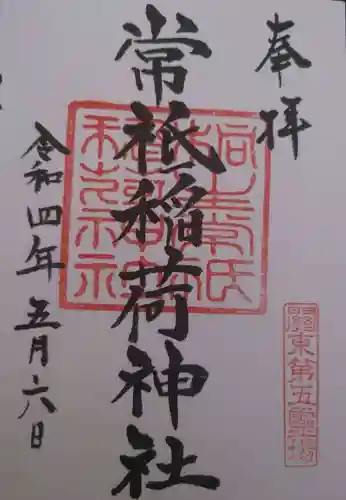 奉拝
常祇稲荷神社
令和四年五月六日
關東第五靈場